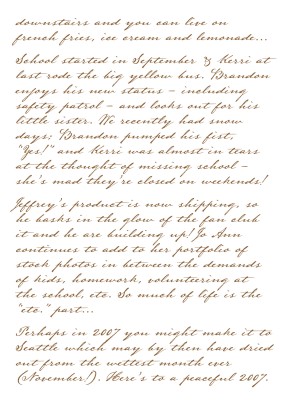 downstairs and you can live on
french fries, ice cream and lemonade...
School started in September & Kerri at
last rode the big yellow bus. Brandon
enjoys his new status – including
safety patrol – and looks out for his
little sister. We recently had snow
days; Brandon pumped his fist,
"Yes!" and Kerri was almost in tears
at the thought of missing school –
she's mad they're closed on weekends!
Jeffrey's product is now shipping, so
he basks in the glow of the fan club
it and he are building up! Jo Ann
continues to add to her portfolio of
stock photos in between the demands
of kids, homework, volunteering at
the school, etc. So much of life is the
"etc." part...
Perhaps in 2007 you might make it to
Seattle which may by then have dried
out from the wettest month ever
(November!). Here's to a peaceful 2007.